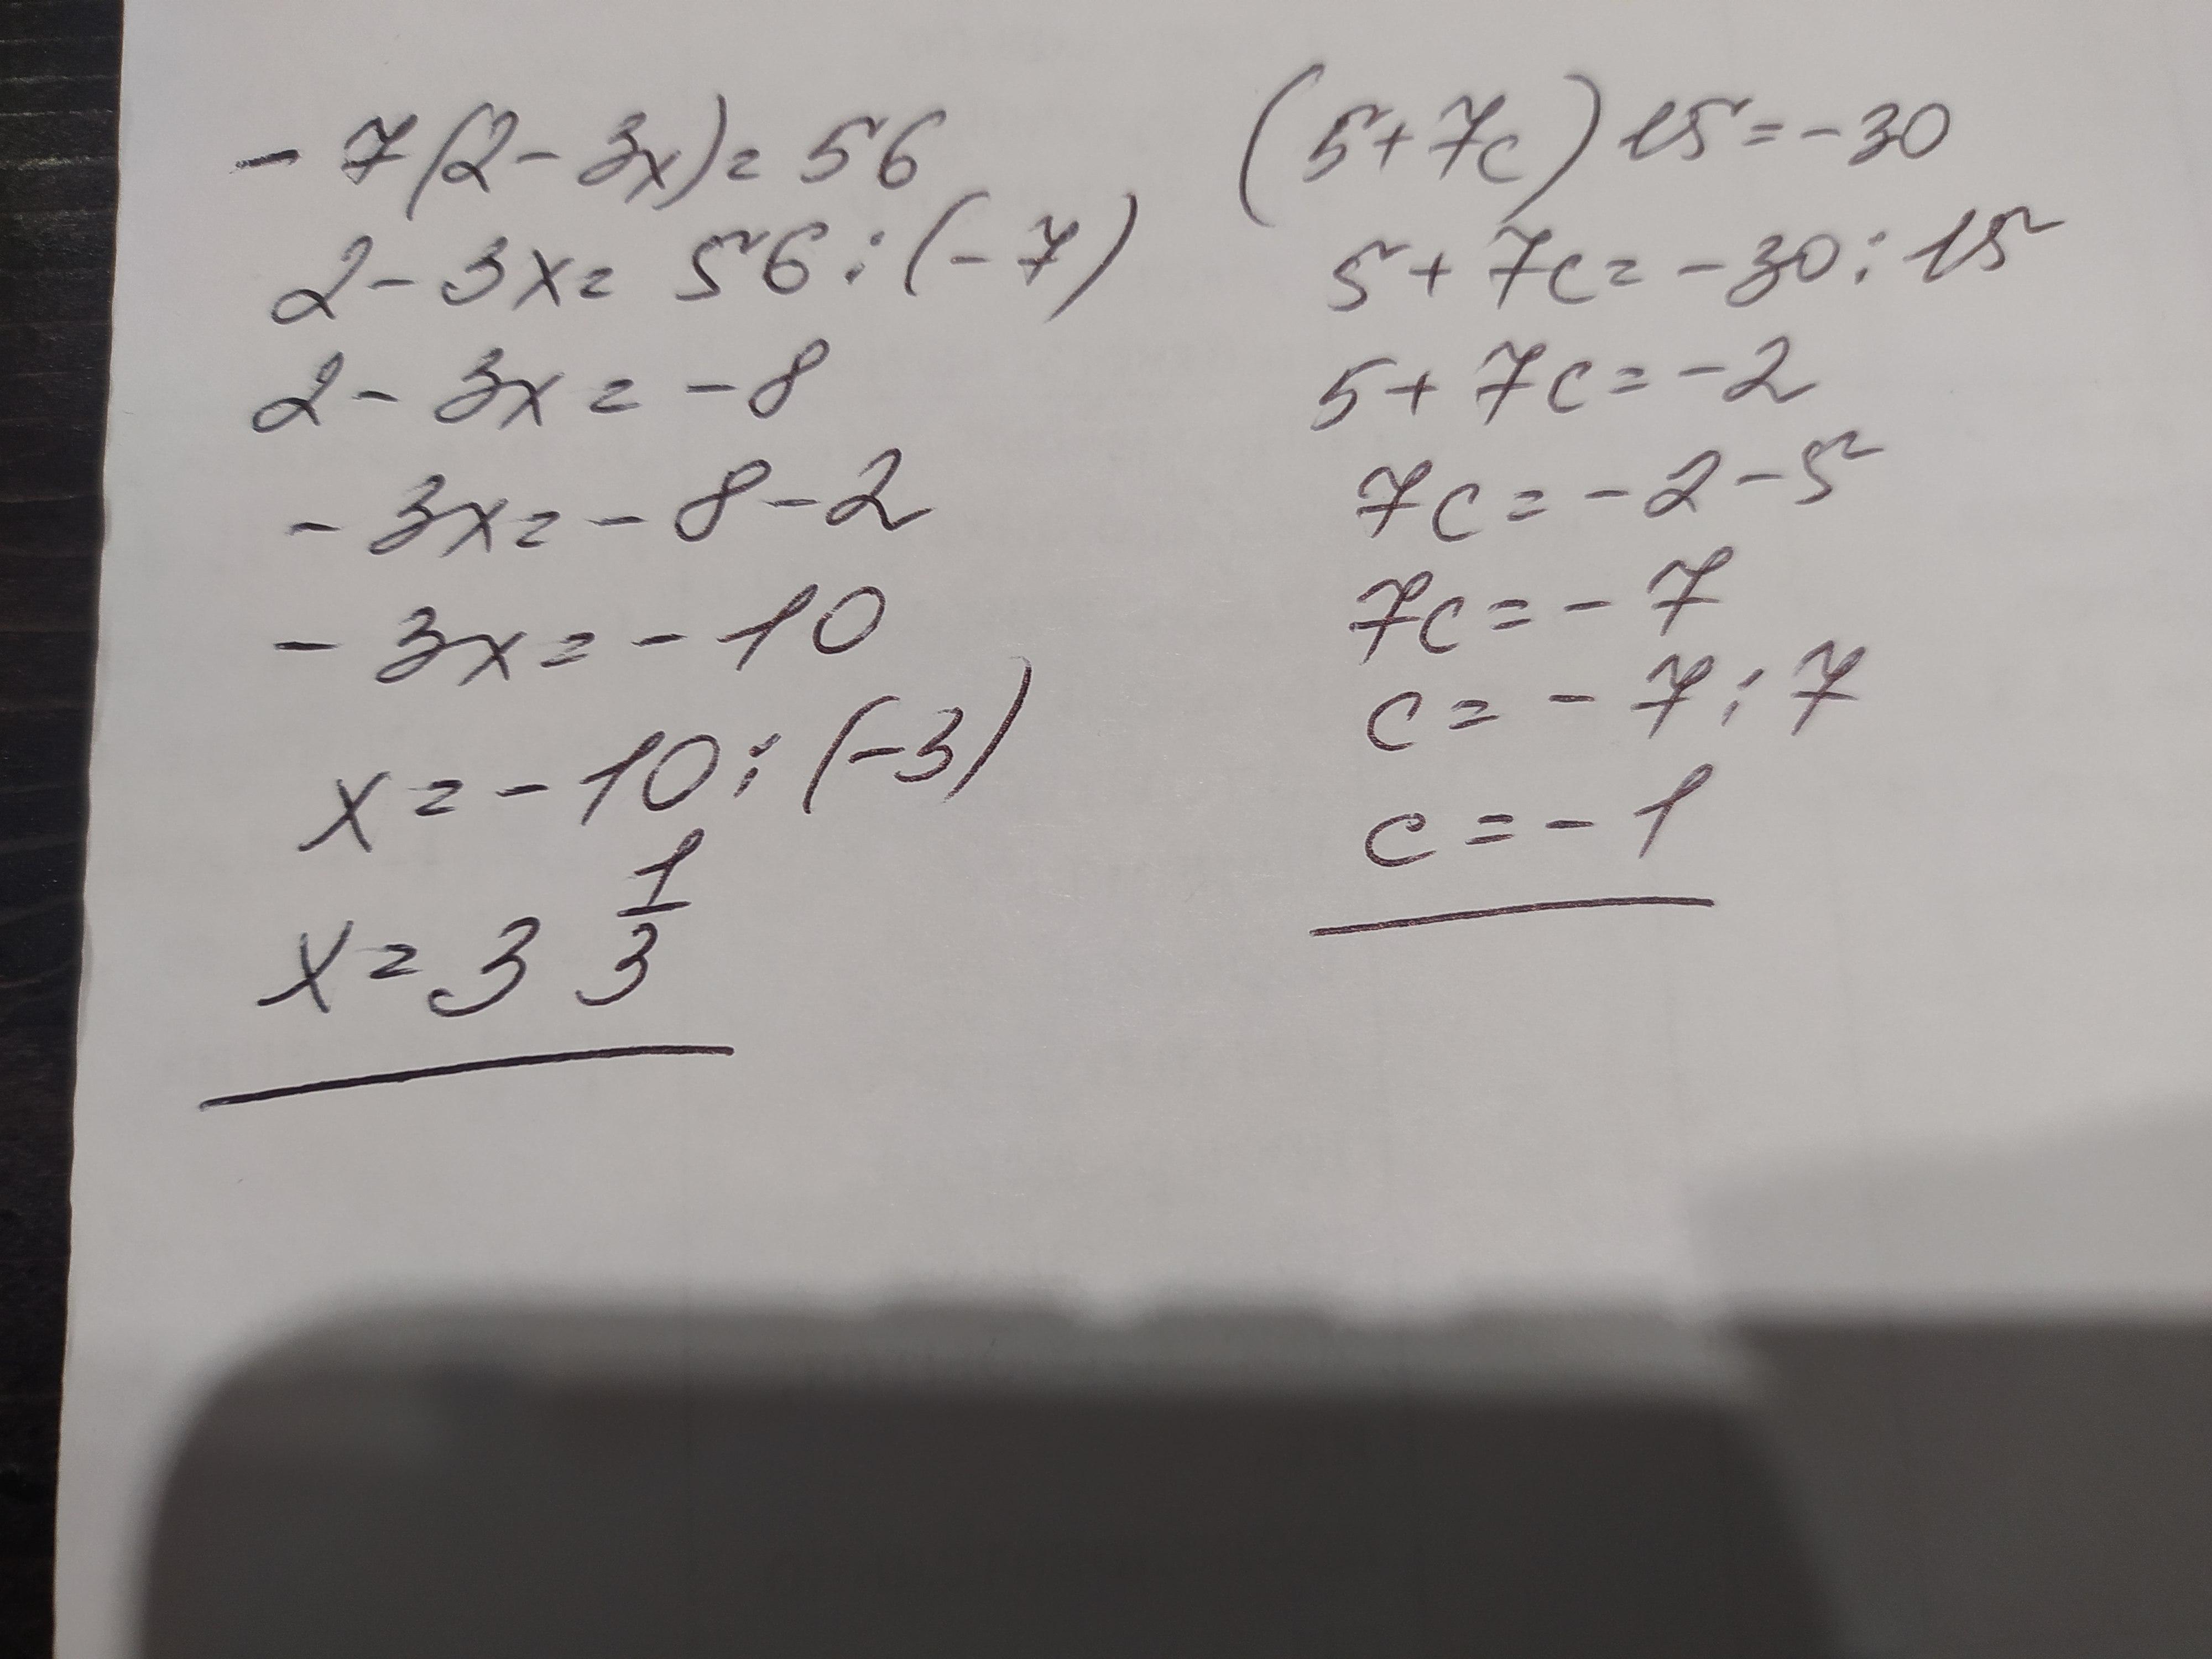 - 7(2 - 3x) = 56
2 - 3x = 56 : (-7)
2 - 3x = -8
- 3x = - 8 - 2
- 3x = - 10
x = - 10 : (-3)
x = 3 1/3
(5 + 7c) 15 = -30
5 + 7c = -30 : 15
5 + 7c = -2
7c = -2 - 5
7c = - 7
c = - 7 : 7
c = - 1